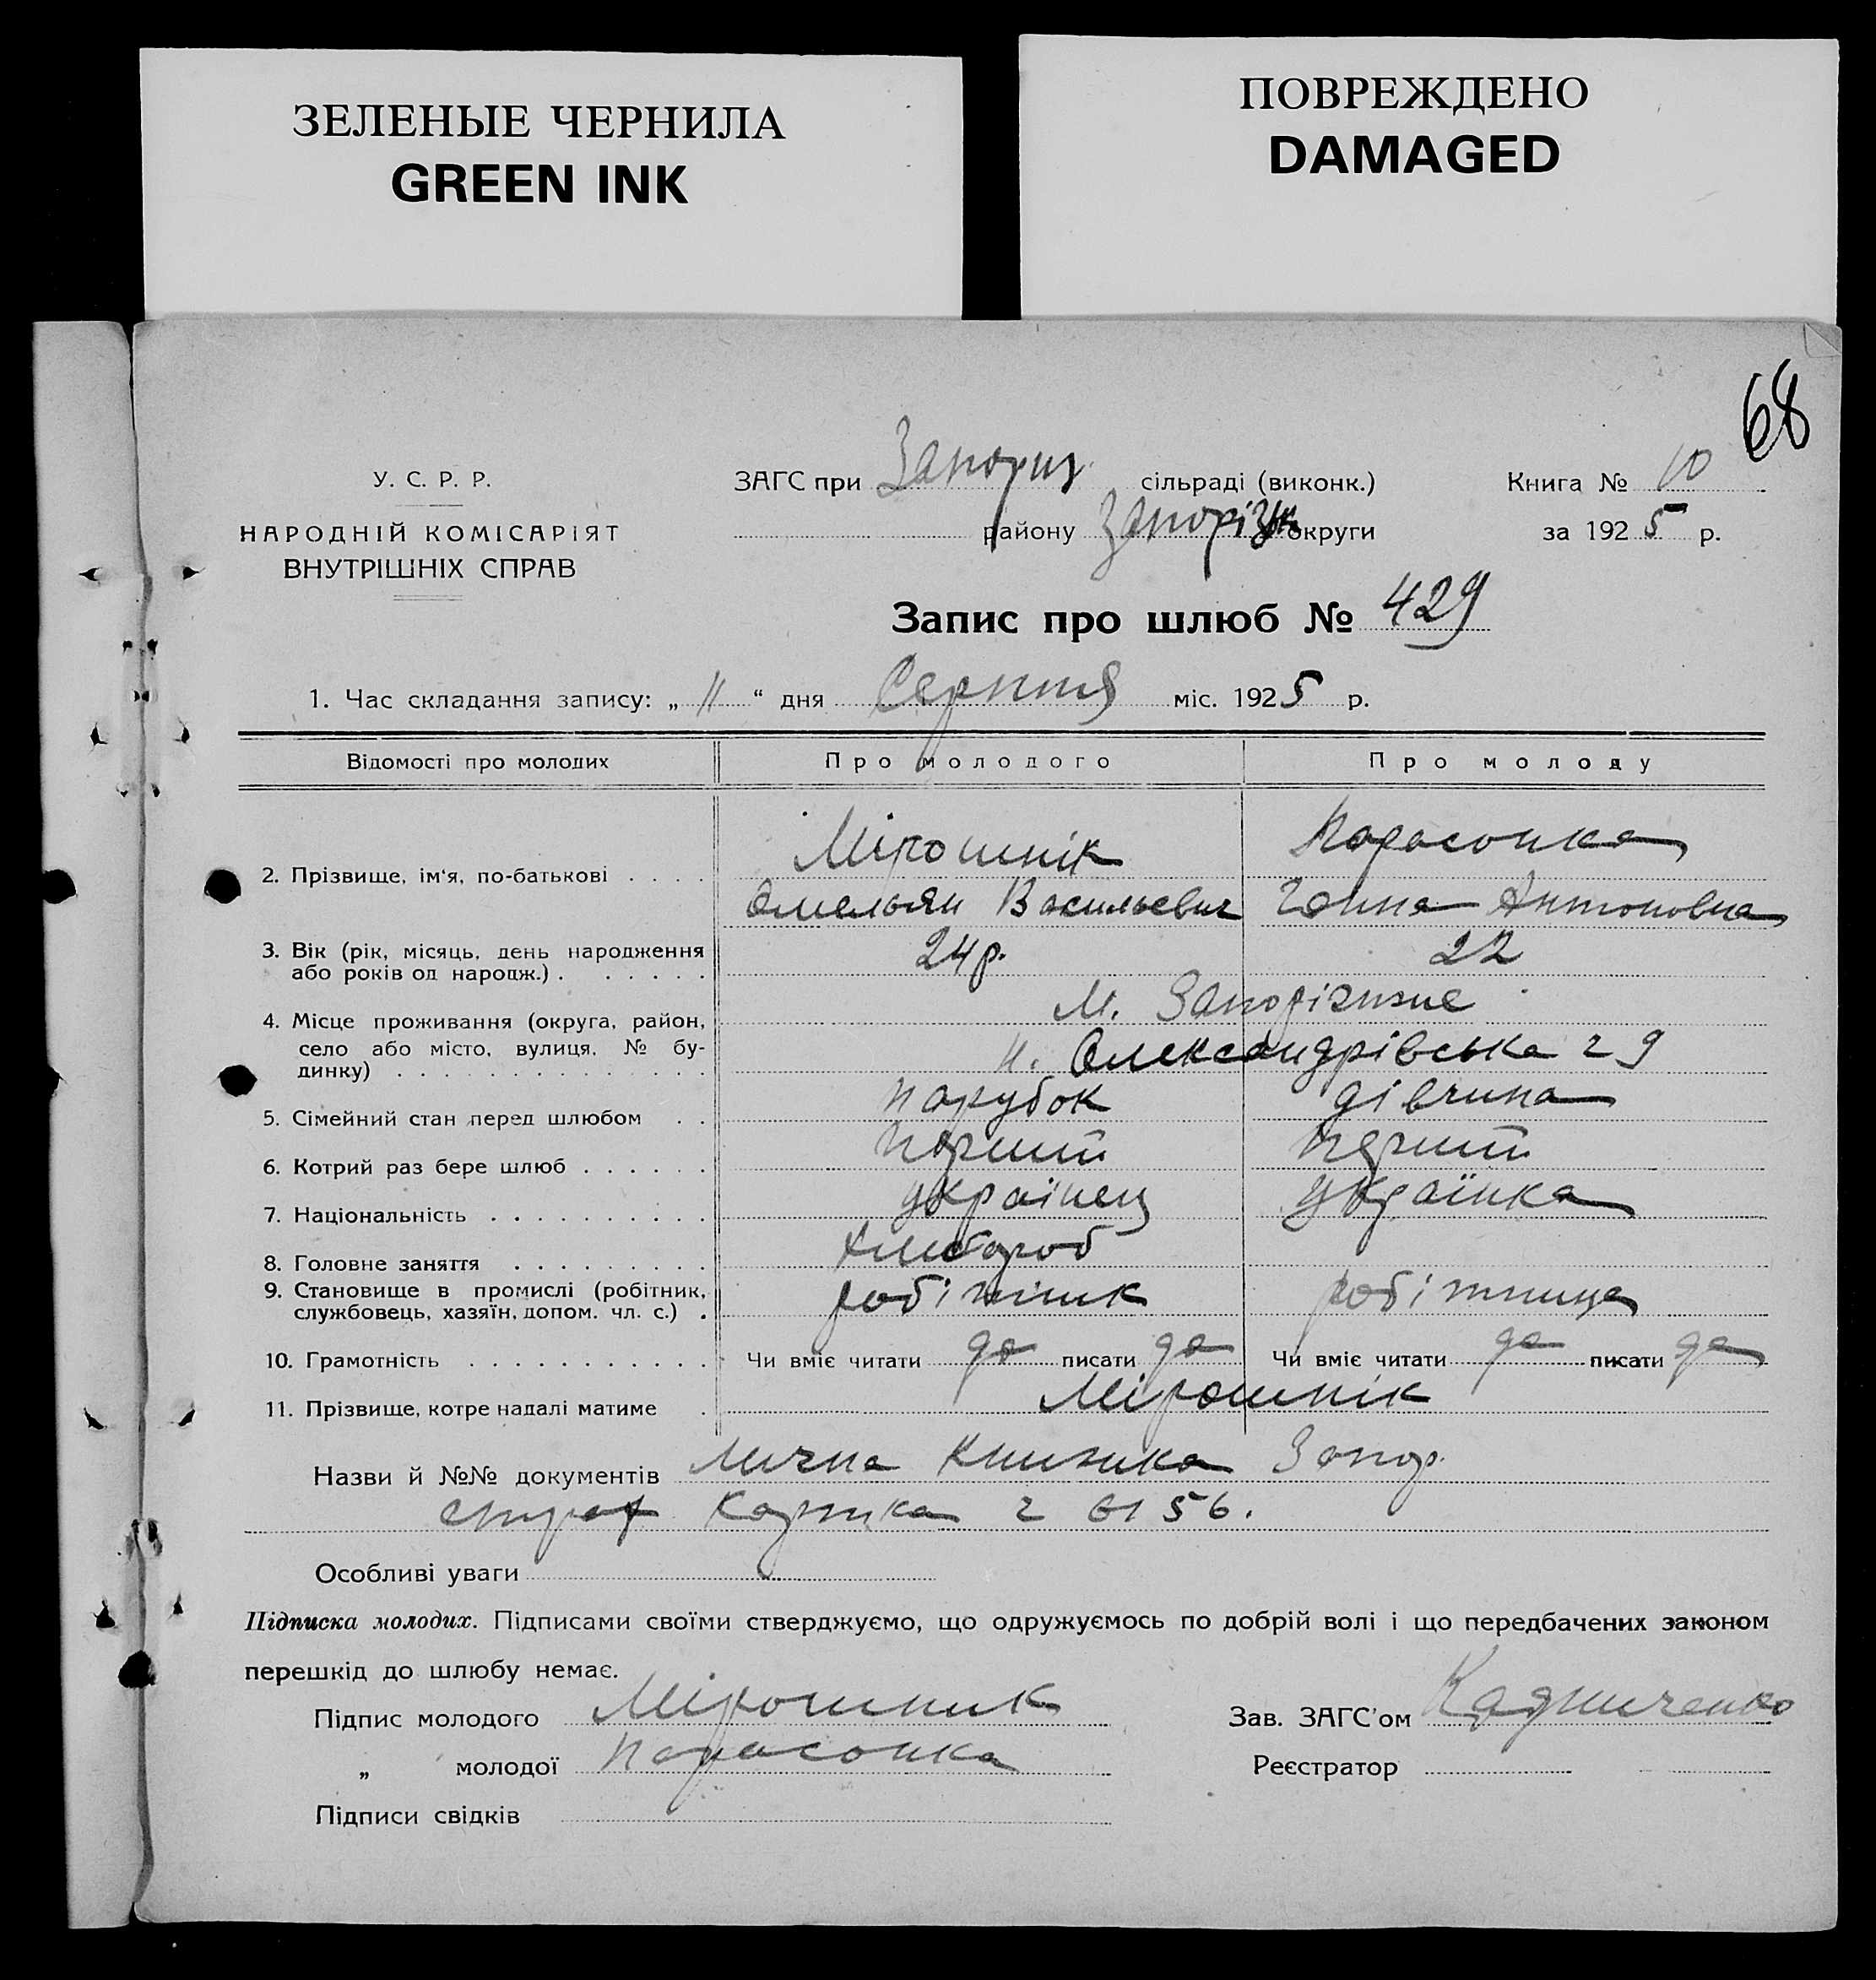 ЗЕЛЕНЫЕ ЧЕРНИЛА
GREEN INK
ПОВРЕЖДЕНО
DAMAGED
68
У. С. Р. Р.
НАРОДНІЙ КОМІСАРІЯТ
ВНУТРІШНІХ СПРАВ
ЗАГС при Запориз. сільраді (виконк.)
району Запорізьк округи
Книга № 10
за 1925 р.
Запис про шлюб № 429
1. Час складання запису: „ 11 “ дня Серпня міс. 1925 р.
Відомості про молодих Про молодого Про молоду
Мірошнік Парасочка
2. Прізвище, ім‘я, по-батькові . . . .
Омельян Васильевич Ганна Антоновна
3. Вік (рік, місяць, день народження 24 р. 22
або років од народж.) . . . . . .
м. Запоріжже
4. Місце проживання (округа, район,
село або місто, вулиця, № бу- Олександрівська 29
динку) . . . . . . . . . . . . . .
5. Сімейний стан перед шлюбом . . парубок дівчина
6. Котрий раз бере шлюб . . . . . . перший перший
7. Національність . . . . . . . . . . українец українка
8. Головне заняття . . . . . . . . . хлібороб
9. Становище в промислі (робітник, робітник робітниця
службовець, хазяїн, допом. чл. с.) .
10. Грамотність . . . . . . . . . . . . Чи вміє читати да писати да Чи вміє читати да писати да
11. Прізвище, котре надалі матиме . Мірошнік
Назви й №№ документів Лична Книжка Запор.
страх картка ч 6156.
Особливі уваги
Підписка молодих. Підписами своїми стверджуємо, що одружуємось по добрій волі і що передбачених законом
перешкід до шлюбу немає.
Підпис молодого Мірошник Зав. ЗАГС'ом
„ молодої Парасочка Реєстратор
Підписи свідків